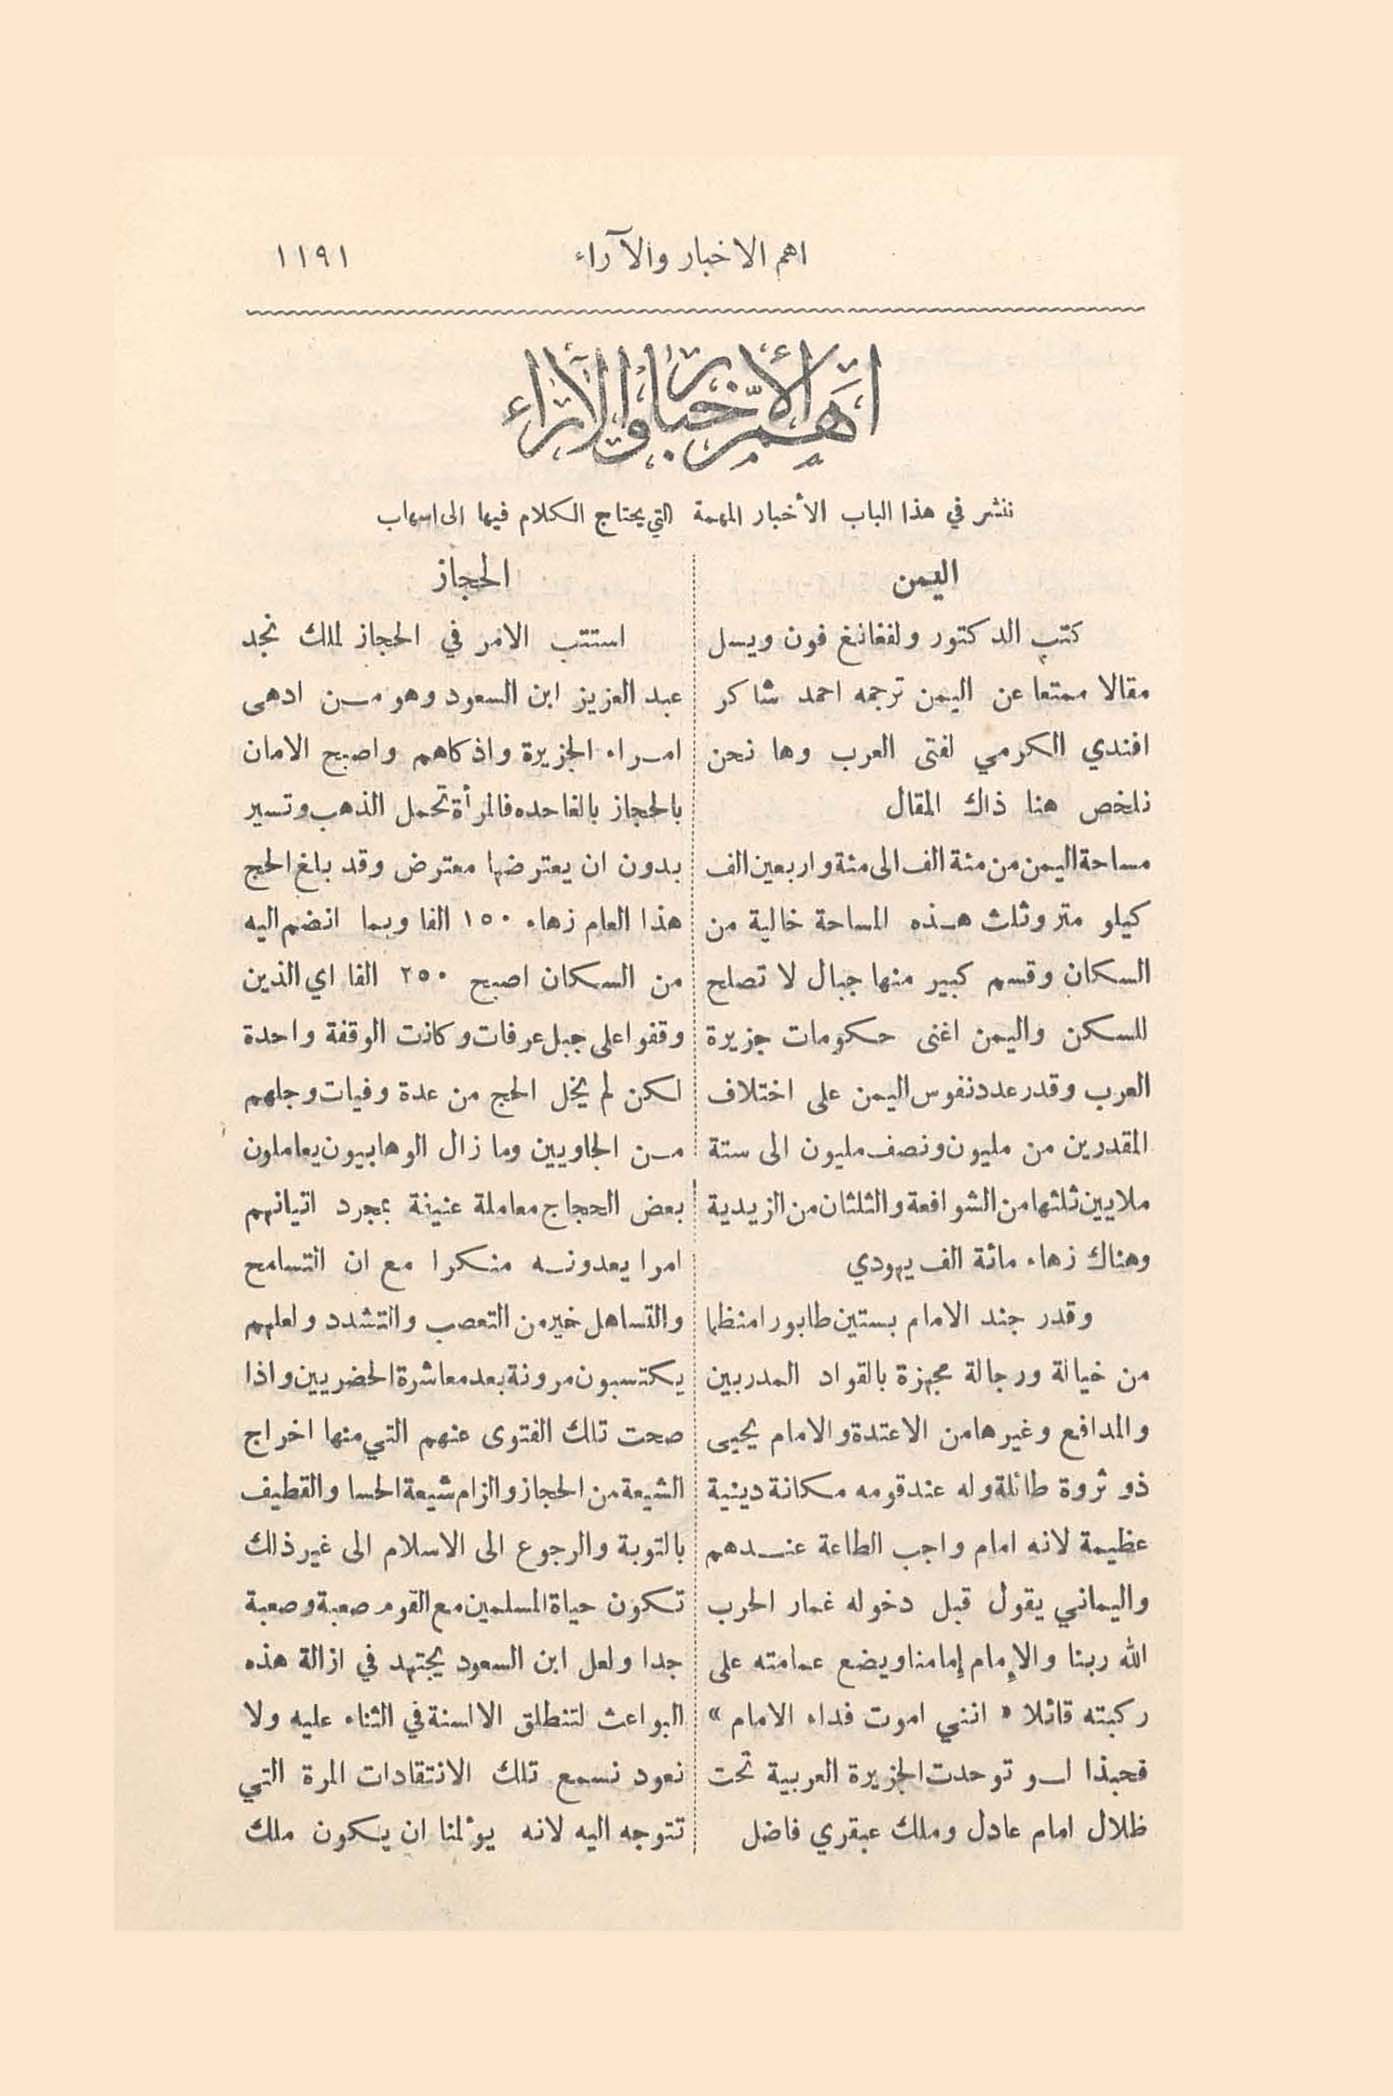 اهم الاخبار والآراء ١١٩١
اهم الأخبار والآراء
ننشر في هذا الباب الأخبار المهمة التي يحتاج الكلام فيها الى اسهاب
اليمن
كتب الدكتور ولفغانغ فون ويسل
مقالا ممتعا عن اليمن ترجمه احمد شاكر
افندي الكرمي لفتى العرب وها نحن
نلخص هنا ذاك المقال
مساحة اليمن من مئة الف الى مئة واربعين الف
كيلو متر وثلث هذه المساحة خالية من
السكان وقسم كبير منها جبال لا تصلح
للسكن واليمن اغنى حكومات جزيرة
العرب وقدر عدد نفوس اليمن على اختلاف
المقدرين من مليون ونصف مليون الى ستة
ملايين ثلثها من الشوافعة والثلثان من الزيدية
وهناك زهاء مائة الف يهودي
وقدر جند الامام بستين طابورا منظما
من خيالة ورجالة مجهزة بالقواد المدربين
والمدافع وغيرها من الاعتدة والامام يحيى
ذو ثروة طائلة وله عند قومه مكانة دينية
عظيمة لانه امام واجب الطاعة عندهم
واليماني يقول قبل دخوله غمار الحرب
الله ربنا والإمام إمامنا ويضع عمامته على
ركبته قائلا « انني اموت فداء الامام »
فحبذا لو توحدت الجزيرة العربية تحت
ظلال امام عادل وملك عبقري فاضل
الحجاز
استتب الامر في الحجاز لملك نجد
عبد العزيز ابن السعود وهو من ادهى
امراء الجزيرة واذكاهم واصبح الامان
بالحجاز بالغا حده فالمرأة تحمل الذهب وتسير
بدون ان يعترضها معترض وقد بلغ الحج
هذا العام زهاء ١٥٠ الفا وبما انضم اليه
من السكان اصبح ٢٥٠ الفا اي الذين
وقفوا على جبل عرفات وكانت الوقفة واحدة
لكن لم يخل الحج من عدة وفيات وجلهم
من الجاويين وما زال الوهابيون يعاملون
بعض الحجاج معاملة عنيفة بمجرد اتيانهم
امرا يعدونه منكرا مع ان التسامح
والتساهل خير من التعصب والتشدد ولعلهم
يكتسبون مرونة بعد معاشرة الحضريين واذا
صحت تلك الفتوى عنهم التي منها اخراج
الشيعة من الحجاز والزام شيعة الحسا والقطيف
بالتوبة والرجوع الى الاسلام الى غير ذلك
تكون حياة المسلمين مع القوم صعبة وصعبة
جدا ولعل ابن السعود يجتهد في ازالة هذه
البواعث لتنطلق الالسنة في الثناء عليه ولا
نعود نسمع تلك الانتقادات المرة التي
تتوجه اليه لانه يؤلمنا ان يكون ملك